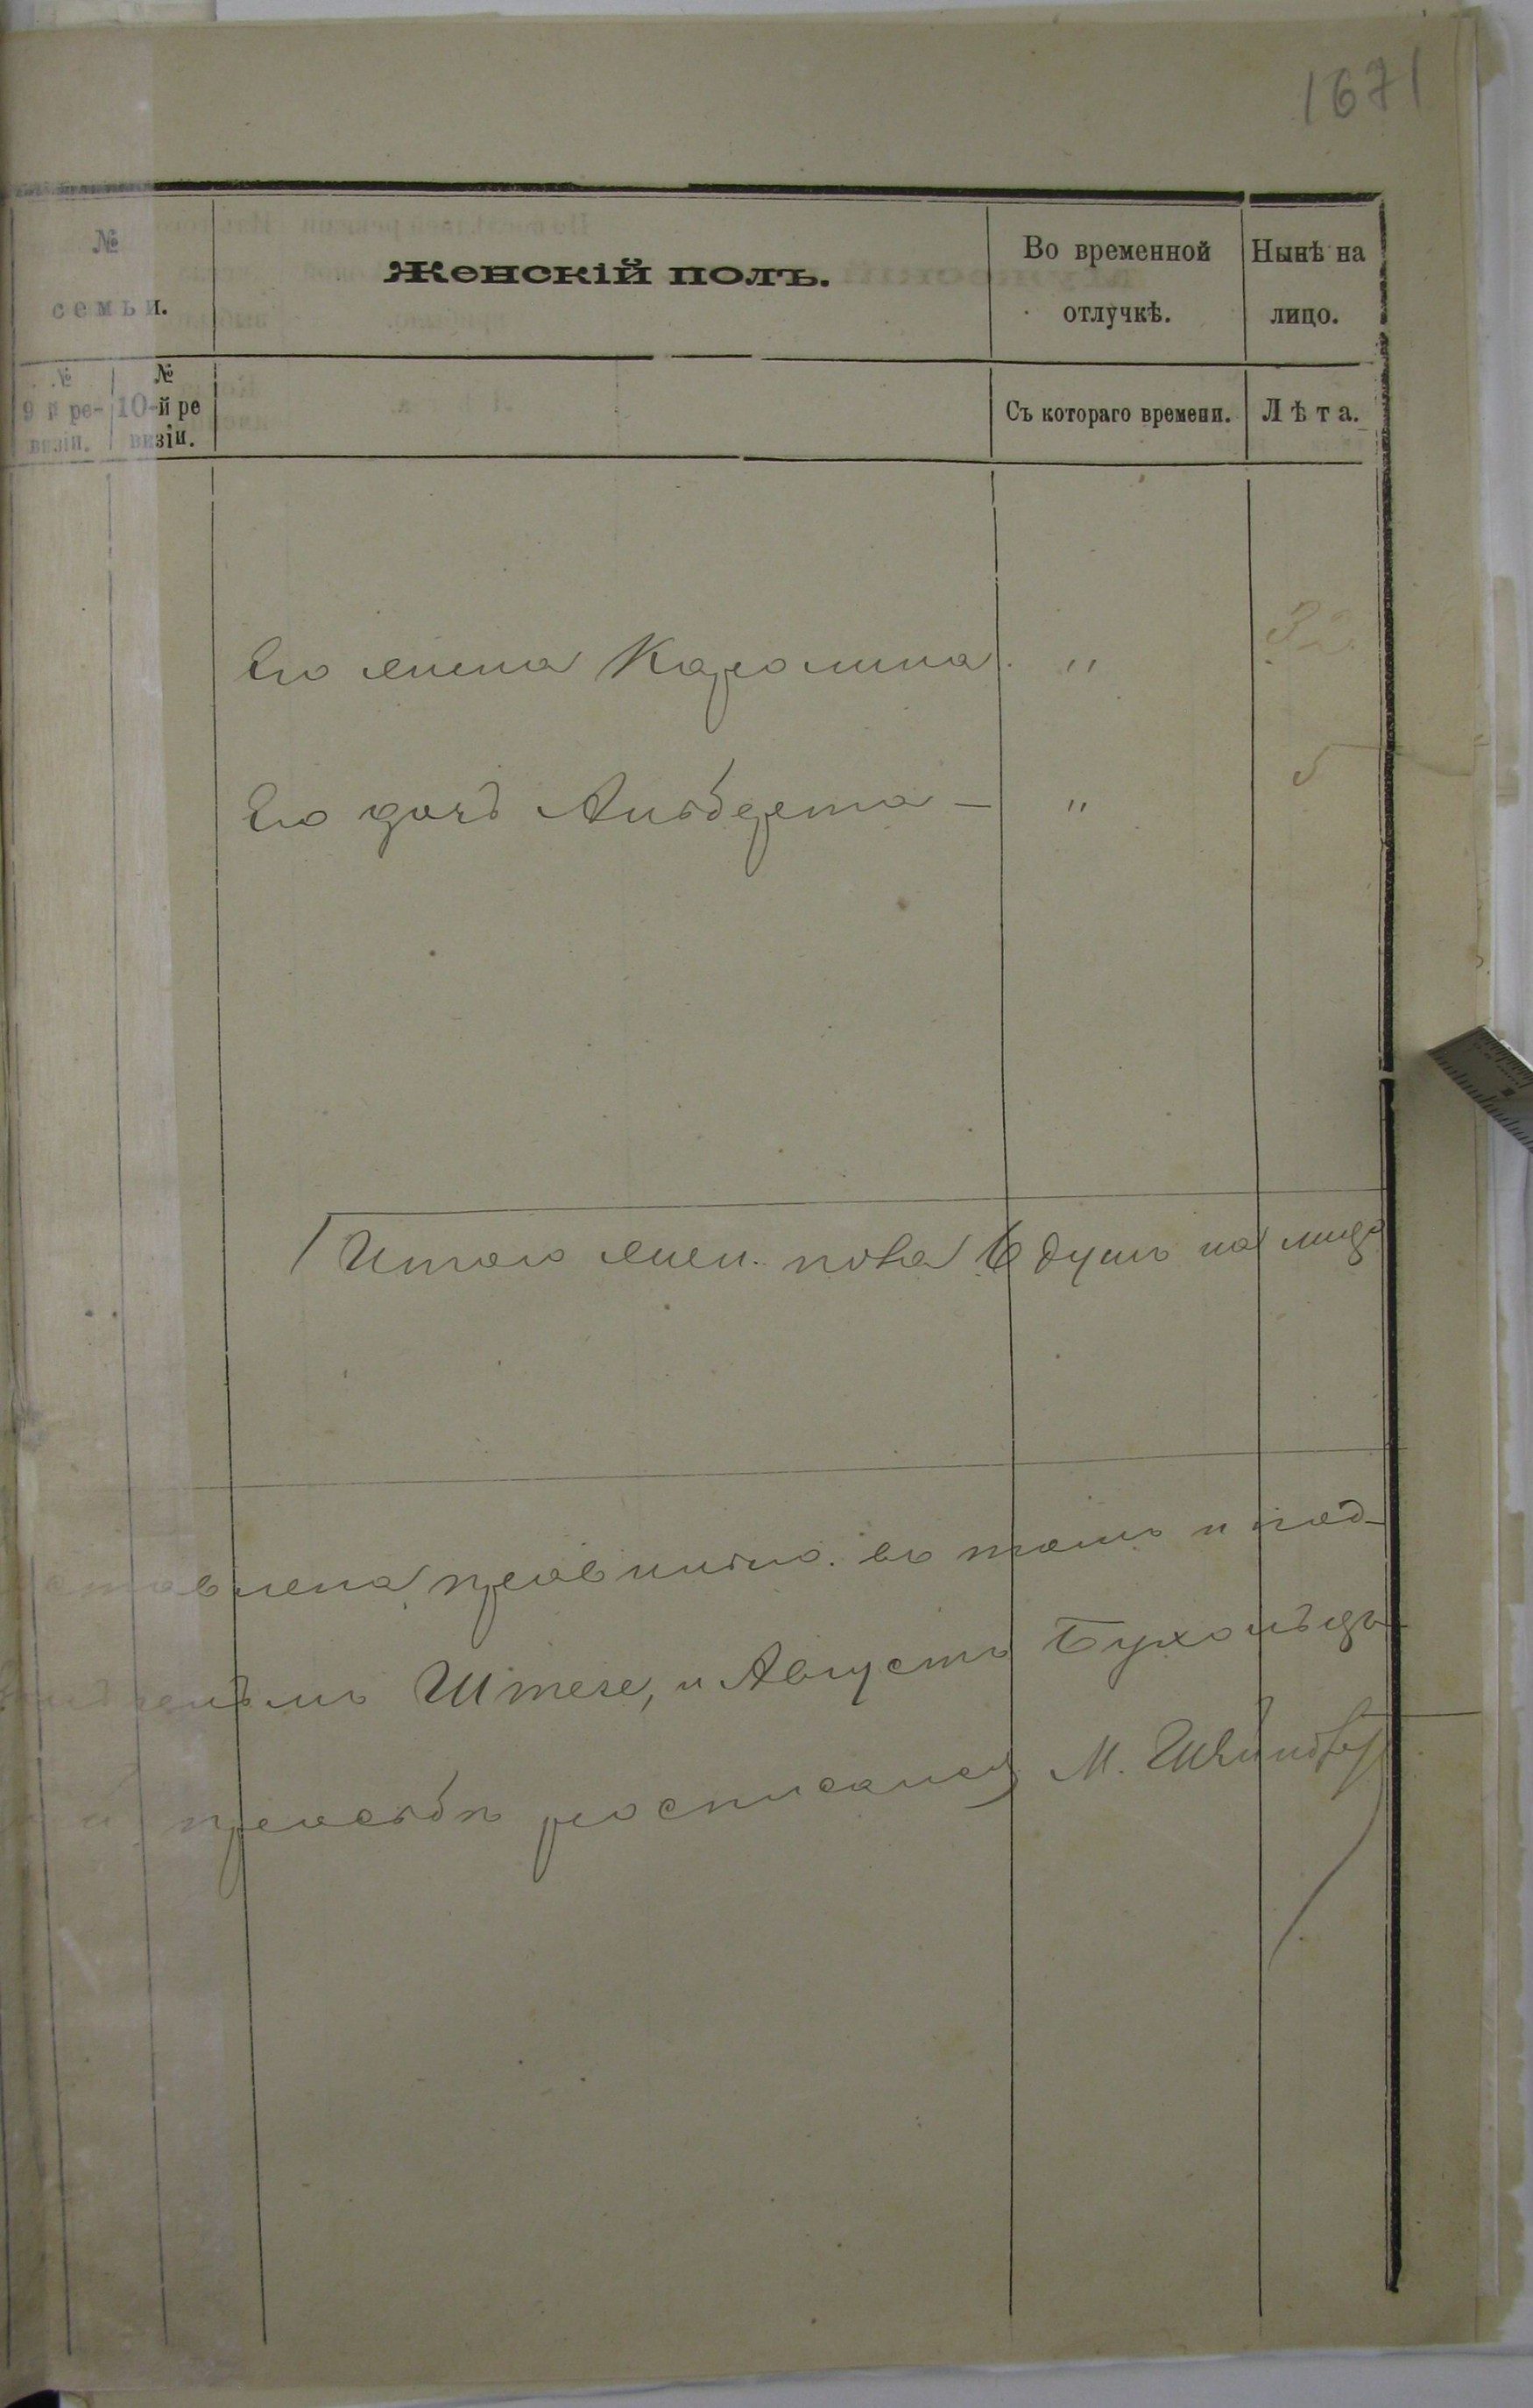 1671
№ семьи.
Женскій полъ.
Во временной отлучкѣ.
Нынѣ на лицо.
№ 9 й ре-визіи.
№ 10-й ре визіи.
Съ котораго времени.
Лѣта.
Его жена Каролина. " 32
Его дочь Альберта — " 5
Итого жен. пола 6 душъ на лицо
ставлена правильно. въ томъ и под-
Штезе, и Августъ Бухольцъ
и просьбѣ росписался М.